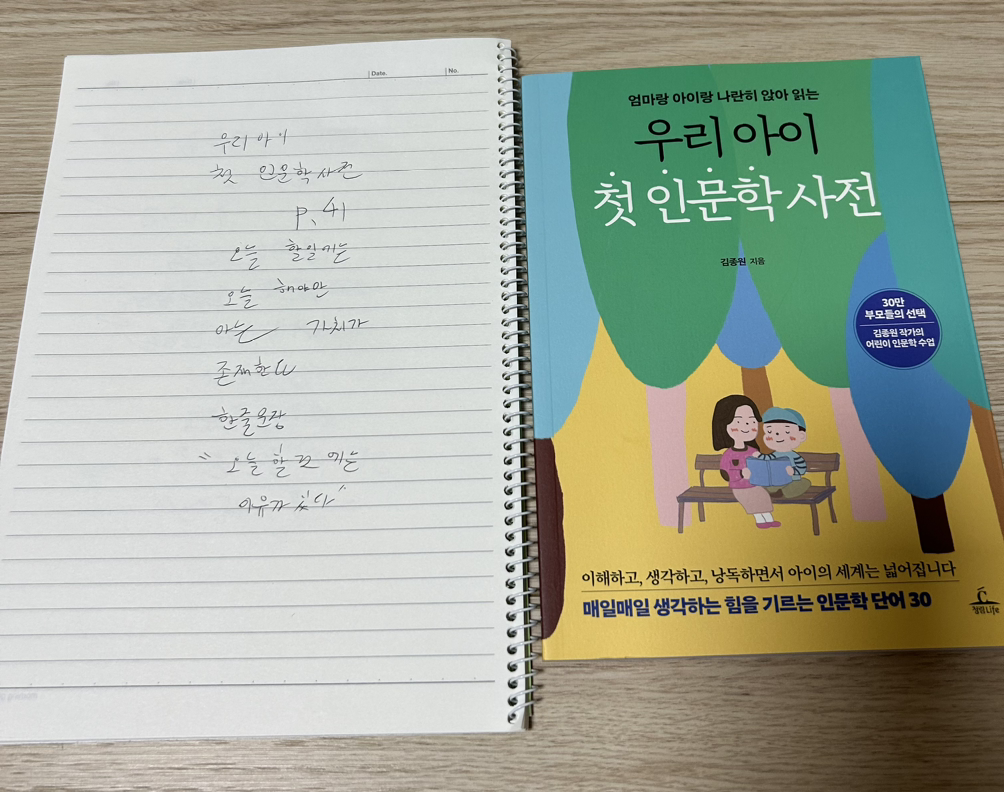 Date.
No.
우리 아이
첫 인문학 사전
P. 41
오늘 할일에는
오늘 해야만
아는 가치가
존재한다
한줄문장
" 오늘 할 에는
이유가 있다"
엄마랑 아이랑 나란히 앉아 읽는
우리 아이
첫 인문학 사전
김종원 지음
30만
부모들의 선택
김종원 작가의
어린이 인문학 수업
이해하고, 생각하고, 낭독하면서 아이의 세계는 넓어집니다
매일매일 생각하는 힘을 기르는 인문학 단어 30
청림Life